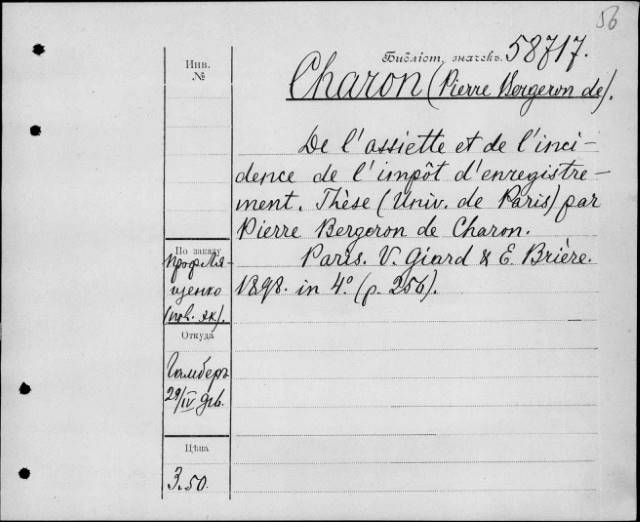 56
Инв.
№
Библіот. значекъ. 58717.
Charon (Pierre Bergeron de).
De l'assiette et de l'inci-
dence de l'impôt d'enregistre-
ment. Thèse (Univ. de Paris) par
Pierre Bergeron de Charon.
Paris. V. Giard & E. Brière.
1898. in 4º (p. 256).
По заказу
проф. Ми-
щенко
Откуда
Гамберъ
29/IV
Цѣна
3.50.